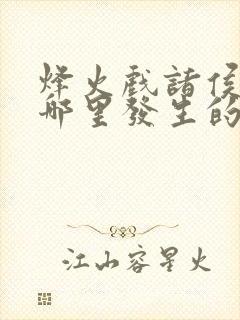 烽火戲諸侯
哪里發生的
江山容星火